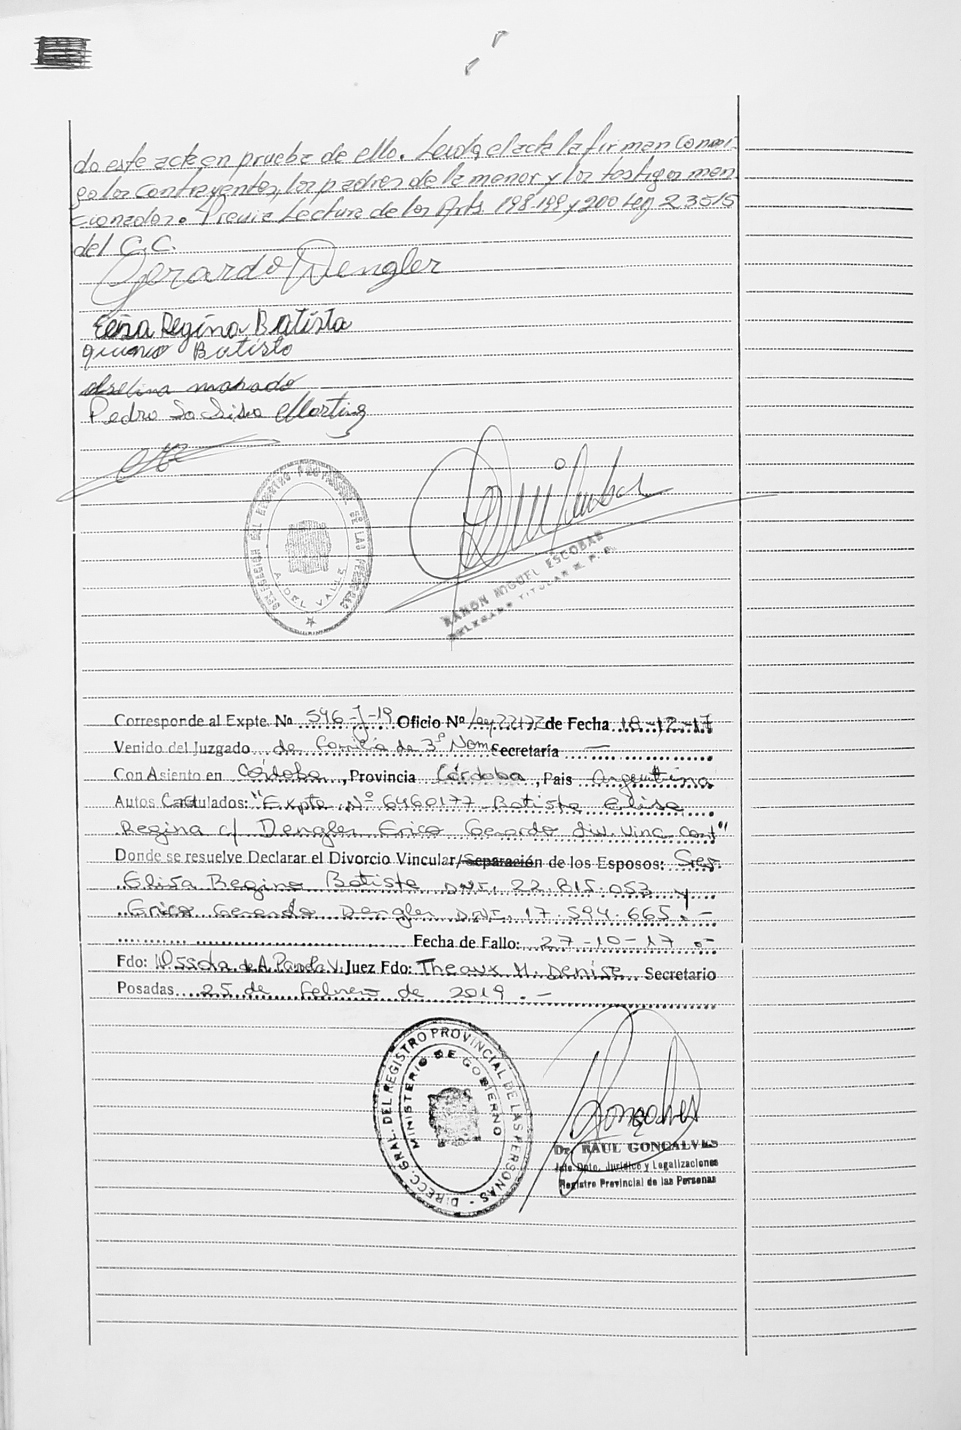 do este acta en prueba de ello. Leida el acta la firman conmi-
go los contrayentes, los padres de la menor y los testigos men
cionados. Previa Lectura de los Arts. 198 199 y 200 Ley 23515
del C.C.
Gerardo Dengler
Elisa Regina Batista
Batista
Pedro Martinez
DELEGACION DEL REGISTRO PROVINCIAL DE LAS PERSONAS
RAMON MIGUEL ESCOBAR
DELEGADO TITULAR R. P. P.
Corresponde al Expte. Nº 546-J-19 Oficio Nº Ley 22172 de Fecha 18-12-17
Venido del Juzgado de Familia de 3ª Nom Secretaría —
Con Asiento en Córdoba, Provincia Córdoba, Pais Argentina
Autos Caratulados: "Expte Nº 6460177 Batista Elisa
Regina c/ Dengler Erico Gerardo div. vinc. cont"
Donde se resuelve Declarar el Divorcio Vincular/Separación de los Esposos: Sres.
Elisa Regina Batista DNI. 22.815.053 y
Erico Gerardo Dengler DNI. 17.594.665.-
Fecha de Fallo: 27-10-17.-
Fdo: Juez Fdo: Theaux M. Denise Secretario
Posadas 25 de Febrero de 2019.-
DIRECC. GRAL. DEL REGISTRO PROVINCIAL DE LAS PERSONAS -
MINISTERIO DE GOBIERNO
Dr. RAUL GONCALVES
Jefe Dpto. Jurídico y Legalizaciones
Registro Provincial de las Personas